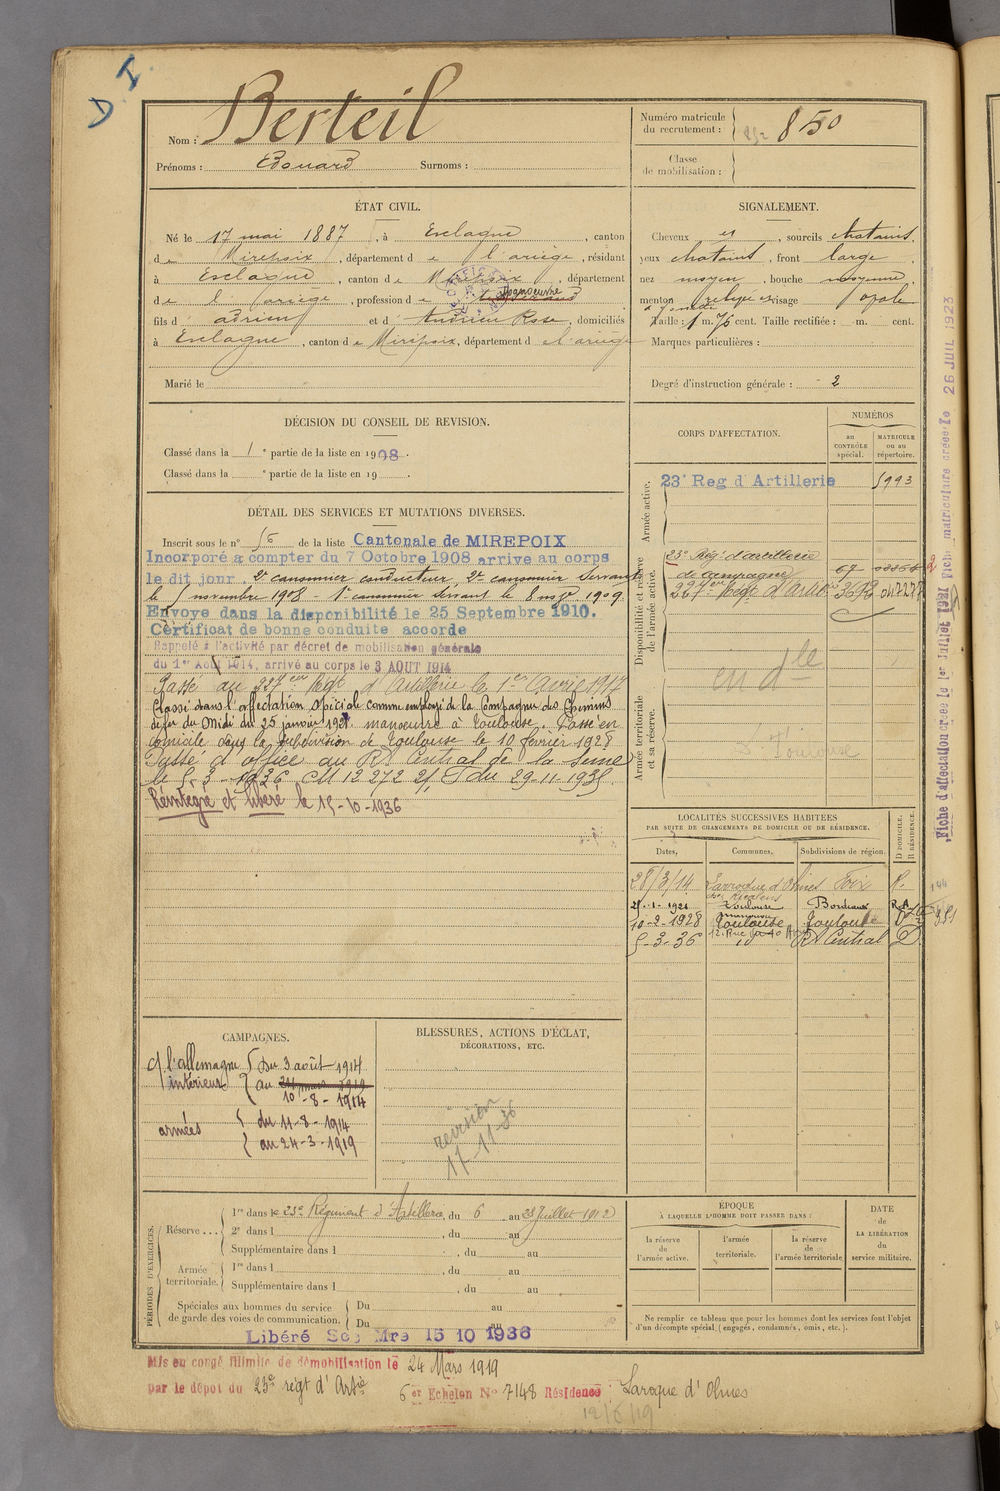 D I
Nom : Berteil
Prénoms : Edouard Surnoms :
Numéro matricule du recrutement : 850
Classe de mobilisation :
ÉTAT CIVIL.
Né le 17 mai 1887, à Esclagne, canton
de Mirepoix, département de l'ariège, résidant
à Esclagne, canton de Mirepoix, département
de l'ariège, profession de manoeuvre
fils d'adrien et d'Andrieu Rose, domiciliés
à Esclagne, canton de Mirepoix, département de l'ariège
Marié le
SIGNALEMENT.
Cheveux et, sourcils chatains,
yeux chatains, front large,
nez moyen, bouche moyenne,
menton visage ovale
Taille : 1 m. 76 cent. Taille rectifiée : m. cent.
Marques particulières :
Degré d'instruction générale : 2
DÉCISION DU CONSEIL DE REVISION.
Classé dans la 1e partie de la liste en 1908.
Classé dans la e partie de la liste en 19 .
DÉTAIL DES SERVICES ET MUTATIONS DIVERSES.
Inscrit sous le n° 56 de la liste Cantonale de MIREPOIX
Incorporé à compter du 7 Octobre 1908 arrive au corps
le dit jour. 2e canonnier conducteur, 2e canonnier Servant
le 5 novembre 1908 - 1e canonnier servant le 8 1909.
Envoye dans la disponibilité le 25 Septembre 1910.
Certificat de bonne conduite accorde
Rappelé à l'activité par décret de mobilisation générale
du 1er Août 1914, arrivé au corps le 3 AOUT 1914
Passé au 327eme Regt d'Artillerie le 1er Avril 1917
Classé dans l'affectation spéciale comme employé de la Compagnie des Chemins
de fer du Midi du 25 janvier 1921 manoeuvre à Toulouse. Passé en
domicile dans la subdivision de Toulouse le 10 février 1928
Passé d'office au RR Central de la Seine
le 5-3-1936 CM 12272 2/ du 29-11-1935
Réintégré et libéré le 15-10-1936
CORPS D'AFFECTATION.
NUMÉROS
au CONTRÔLE spécial.
MATRICULE ou au répertoire.
Armée active.
23e Reg d'Artillerie 5993
Disponibilité et réserve de l'armée active.
23e Rég. d'artillerie
de campagne 67
227eme Regt d'Art. 3692
Armée territoriale et sa réserve.
en dle
Toulouse
LOCALITÉS SUCCESSIVES HABITÉES
PAR SUITE DE CHANGEMENTS DE DOMICILE OU DE RÉSIDENCE.
Dates, Communes, Subdivisions de région. D DOMICILE. R RÉSIDENCE.
28/3/14 Larroque d'Olmes Foix R.
25-1-1921 Toulouse Bordeaux R.A
10-2-1928 Toulouse Toulouse
5-3-36 RR Central D
Fiche d'affectation créée le 1er Juillet 1921 Fiche matriculaire créée le 26 JUIL 1923
CAMPAGNES.
c/ l'allemagne { Du 3 août 1914
intérieur { au 24 mars 1919
10-8-1914
armées { du 11-8-1914
{ au 24-3-1919
BLESSURES, ACTIONS D'ÉCLAT,
DÉCORATIONS, ETC.
revision
17-11-36
PÉRIODES D'EXERCICES.
Réserve... 1re dans le 23e Régiment d'Artillerie, du 6 au 28 Juillet 1912
2e dans l , du au
Supplémentaire dans l , du au
Armée territoriale. 1re dans l , du au
Supplémentaire dans l , du au
Spéciales aux hommes du service de garde des voies de communication. Du au
Du au
ÉPOQUE
À LAQUELLE L'HOMME DOIT PASSER DANS :
la réserve de l'armée active.
l'armée territoriale.
la réserve de l'armée territoriale
DATE de LA LIBÉRATION du service militaire.
Ne remplir ce tableau que pour les hommes dont les services font l'objet
d'un décompte spécial (engagés, condamnés, omis, etc.).
Libéré Ser Mre 15 10 1936
Mis en congé illimité de démobilisation le 24 Mars 1919
par le dépot du 23e régt d'Artie 6er Echelon N° 7148 Résidence : Laroque d'Olmes
12/6/19